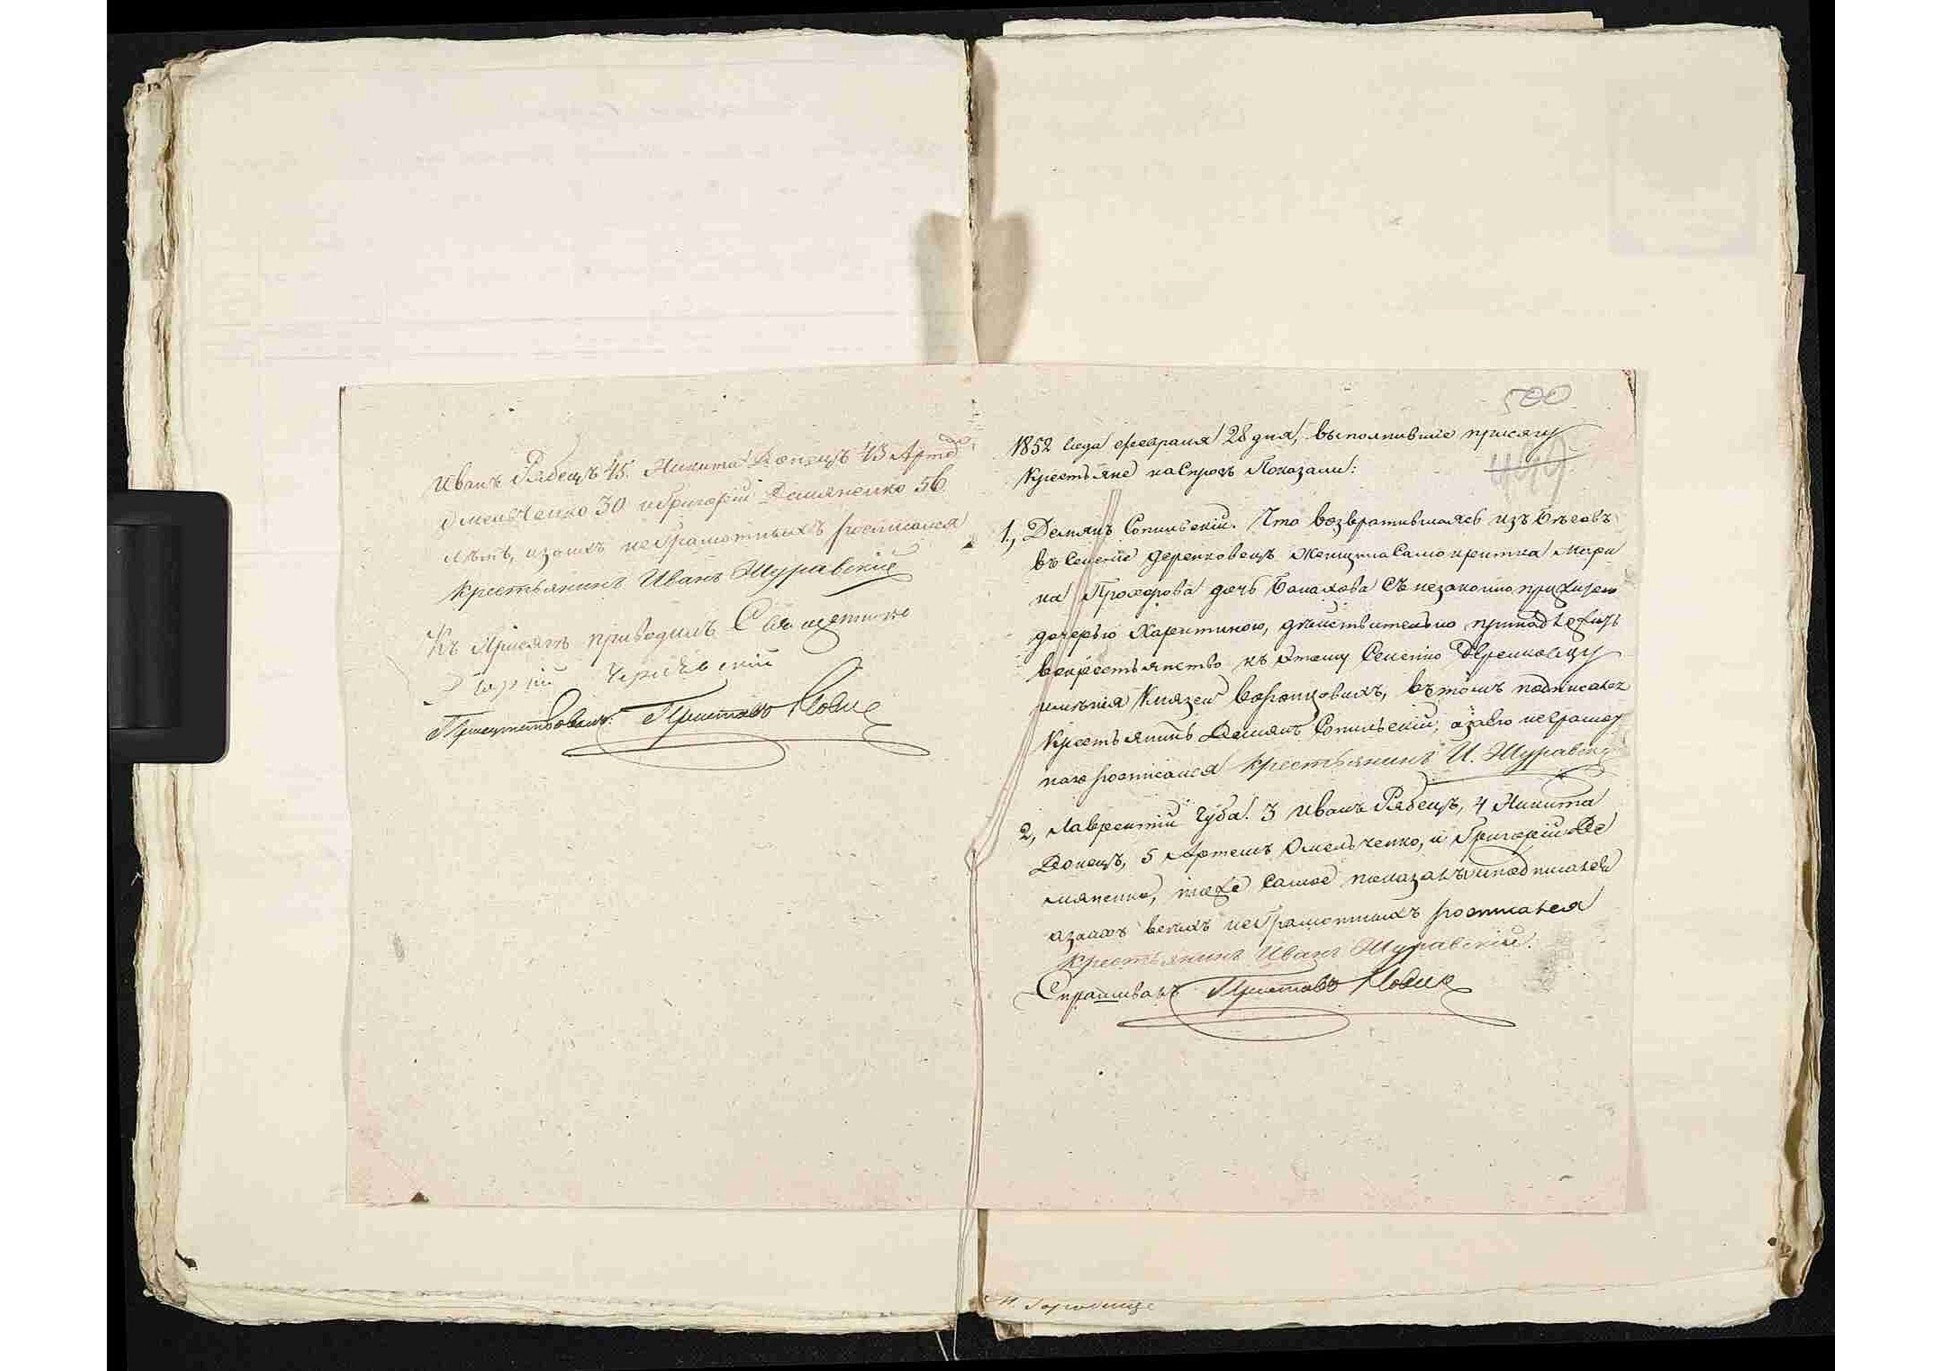 Иванъ Рябецъ 45. Никита Донецъ 43 Артемъ
Омельченко 30 и Григорій Демяненко 56
лѣтъ, а за нихъ неграмотныхъ росписался
крестьянинъ Иванъ Журавскій
Къ Присягѣ приводилъ Священникъ
Присутствовалъ: Приставъ
500
1852 года февраля 28 дня, выполнившіе присягу
499
крестьяне на спросъ Показали:
1, Демянъ Сопильскій. Что возвратившаяся изъ бѣговъ
въ селеніе Деренковецъ женщина Самокритка Мари
на Прохорова дочь с незаконноприжитою
дочерью Харитиною, дѣйствительно принадлежитъ
в крестьянство къ этому Селенію Деренковцу
имѣнія Князей Воронцовыхъ, въ томъ подписался
Крестьянинъ Демянъ Сопильскій, а за его неграмот
ного росписался крестьянинъ И. Журавскій
2, Лаврентій Чуба. 3 Иванъ Рябецъ, 4 Никита
Донецъ, 5 Артемъ Омельченко, и Григорій Де
мяненко, тоже самое показалъ и подписался
а за ихъ всехъ неграмотныхъ росписался
крестьянинъ Иванъ Журавскій.
Спрашивалъ Приставъ
Городище